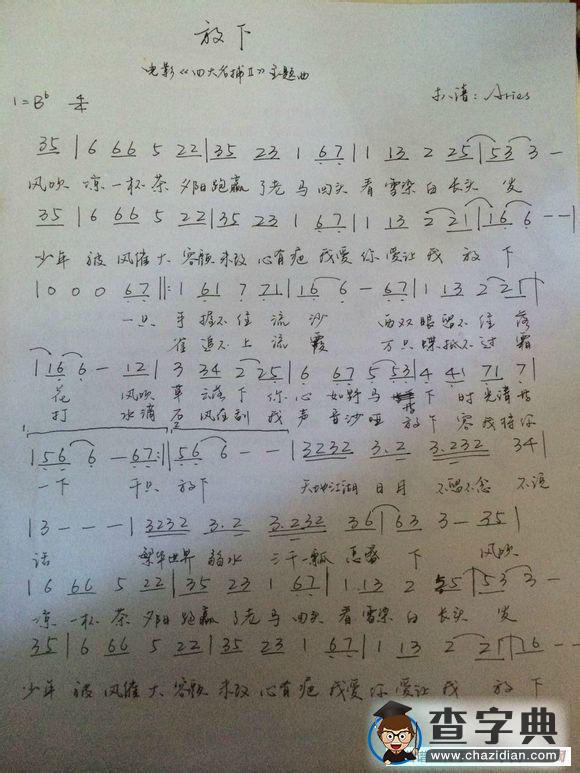 放下
电影《四大名捕Ⅱ》主题曲
1=B♭ 4/4 扒谱：Aries
35 | 6 66 5 22 | 35 23 1 67 | 1 13 2 25 | 53 3 —
风吹 凉一杯茶 夕阳跑赢了老马 回头看雪染白长头发
35 | 6 66 5 22 | 35 23 1 67 | 1 13 2 21 | 16 6 — — |
少年 被风催大 容颜未改心有疤 我爱你爱让我放下
| 0 0 0 67 ‖: 1 61 7 71 | 16 6 — 67 | 1 13 2 21 |
一只 手握不住流沙 两双眼留不住落
雀追不上流霞 万只蝶抵不过霜
| 16 6 — 12 | 3 34 2 25 | 6 67 5 53 | 4 41 71 7 |
花 风吹草 你心如野马 下 时光请
打 水滴石 风在刮 我声音沙哑 放下 容我将你
| 56 6 — 67 :‖ 56 6 — — | 3232 3.2 3.232 34 |
一下 千只 放下 天地江湖日月 不留不念 不语
| 3 — — — | 3232 3.2 3.232 36 | 63 3 — 35 |
话 繁华世界 弱水三千一瓢 下 风吹
| 6 66 5 22 | 35 23 1 67 | 1 13 2 25 | 53 3 —
凉一杯茶 夕阳跑赢了老马 回头看雪染白长头发
35 | 6 66 5 22 | 35 23 1 67 | 1 13 2 21 | 16 — —
少年 被风催大 容颜未改心有疤 我爱你爱让我放下
查字典
www.chazidian.com